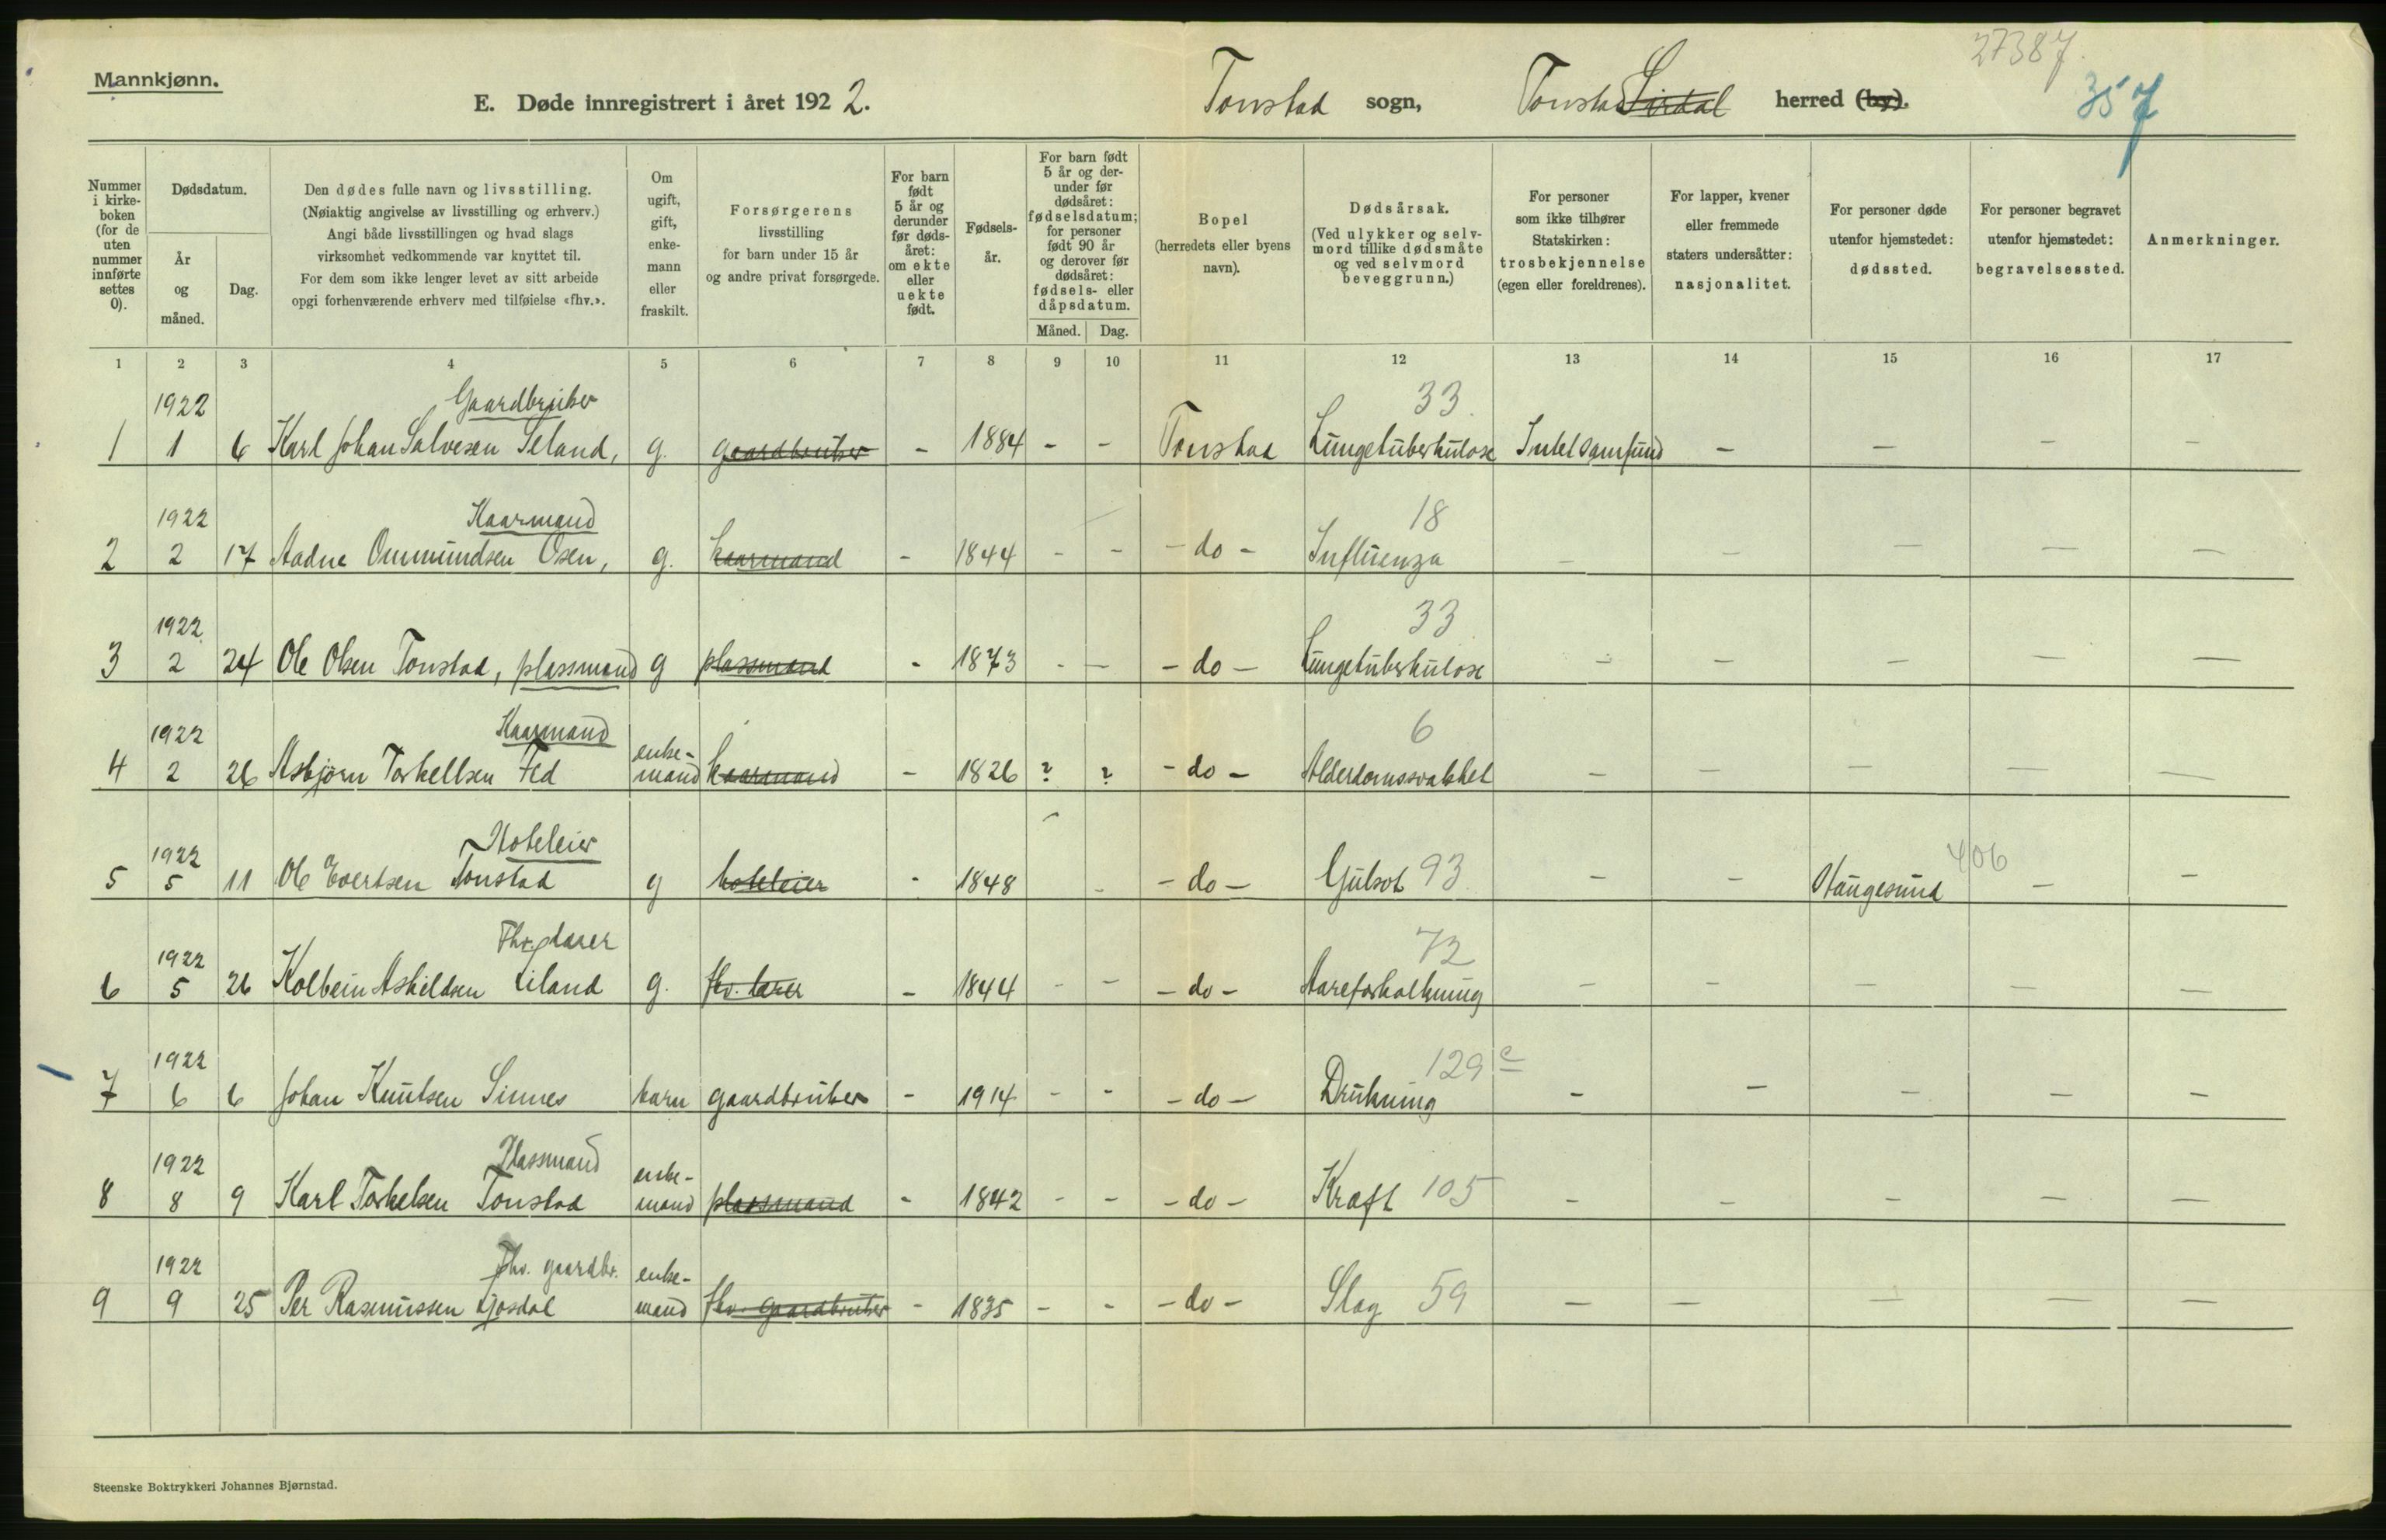 27387.
Mannkjønn.
E. Døde innregistrert i året 1922.
Tonstad sogn, Tonstad Sirdal herred (by).
357
Nummer i kirke-boken (for de uten nummer innførte settes 0).
Dødsdatum.
År og måned.
Dag.
Den dødes fulle navn og livsstilling.
(Nøiaktig angivelse av livsstilling og erhverv.)
Angi både livsstillingen og hvad slags
virksomhet vedkommende var knyttet til.
For dem som ikke lenger levet av sitt arbeide
opgi forhenværende erhverv med tilføielse «fhv.».
Om ugift, gift, enke-mann eller fraskilt.
Forsørgerens
livsstilling
for barn under 15 år
og andre privat forsørgede.
For barn født 5 år og derunder før døds-året: om ekte eller uekte født.
Fødsels-år.
For barn født 5 år og der-under før dødsåret: fødselsdatum; for personer født 90 år og derover før dødsåret: fødsels- eller dåpsdatum.
Måned. Dag.
Bopel
(herredets eller byens
navn).
Dødsårsak.
(Ved ulykker og selv-
mord tillike dødsmåte
og ved selvmord
beveggrunn.)
For personer
som ikke tilhører
Statskirken:
trosbekjennelse
(egen eller foreldrenes).
For lapper, kvener
eller fremmede
staters undersåtter:
nasjonalitet.
For personer døde
utenfor hjemstedet:
dødssted.
For personer begravet
utenfor hjemstedet:
begravelsessted.
Anmerkninger.
1 2 3 4 5 6 7 8 9 10 11 12 13 14 15 16 17
1922 Gaardbruker 33.
1 1 6 Karl Johan Salvesen Seland, g. gaardbruker - 1884 - - Tonstad Lungetuberkulose Intet samfund - - - -
1922 Kaarmand 18
2 2 17 Aadne Ommundsen Osen, g. kaarmand - 1844 - - - do - Influenza - - - - -
1922 33
3 2 24 Ole Olsen Tonstad, plassmand g plassmand - 1873 - - - do - Lungetuberkulose - - - - -
1922 Kaarmand enke- 6
4 2 26 Asbjørn Torkellsen Fed mand kaarmand - 1826 ? ? - do - Alderdomssvakhet - - - - -
1922 Hoteleier 406
5 5 11 Ole Evertsen Tonstad g hoteleier - 1848 - - do - Gulsot 93 - - Haugesund - -
1922 Fhv. lærer 72
6 5 26 Kolbein Askildsen Eiland g. fhv. lærer - 1844 - - - do - Aareforkalkning - - - - -
1922 129 c
7 6 6 Johan Knutsen Sinnes barn gaardbruker - 1914 - - - do - Drukning - - - - -
1922 Plassmand enke-
8 8 9 Karl Torkelsen Tonstad mand plassmand - 1842 - - - do - Kræft 105 - - - - -
1922 fhv. gaardbr. enke-
9 9 25 Per Rasmussen Kjosdal mand fhv. gaardbruker - 1835 - - - do - Slag 59 - - - - -
Steenske Boktrykkeri Johannes Bjørnstad.